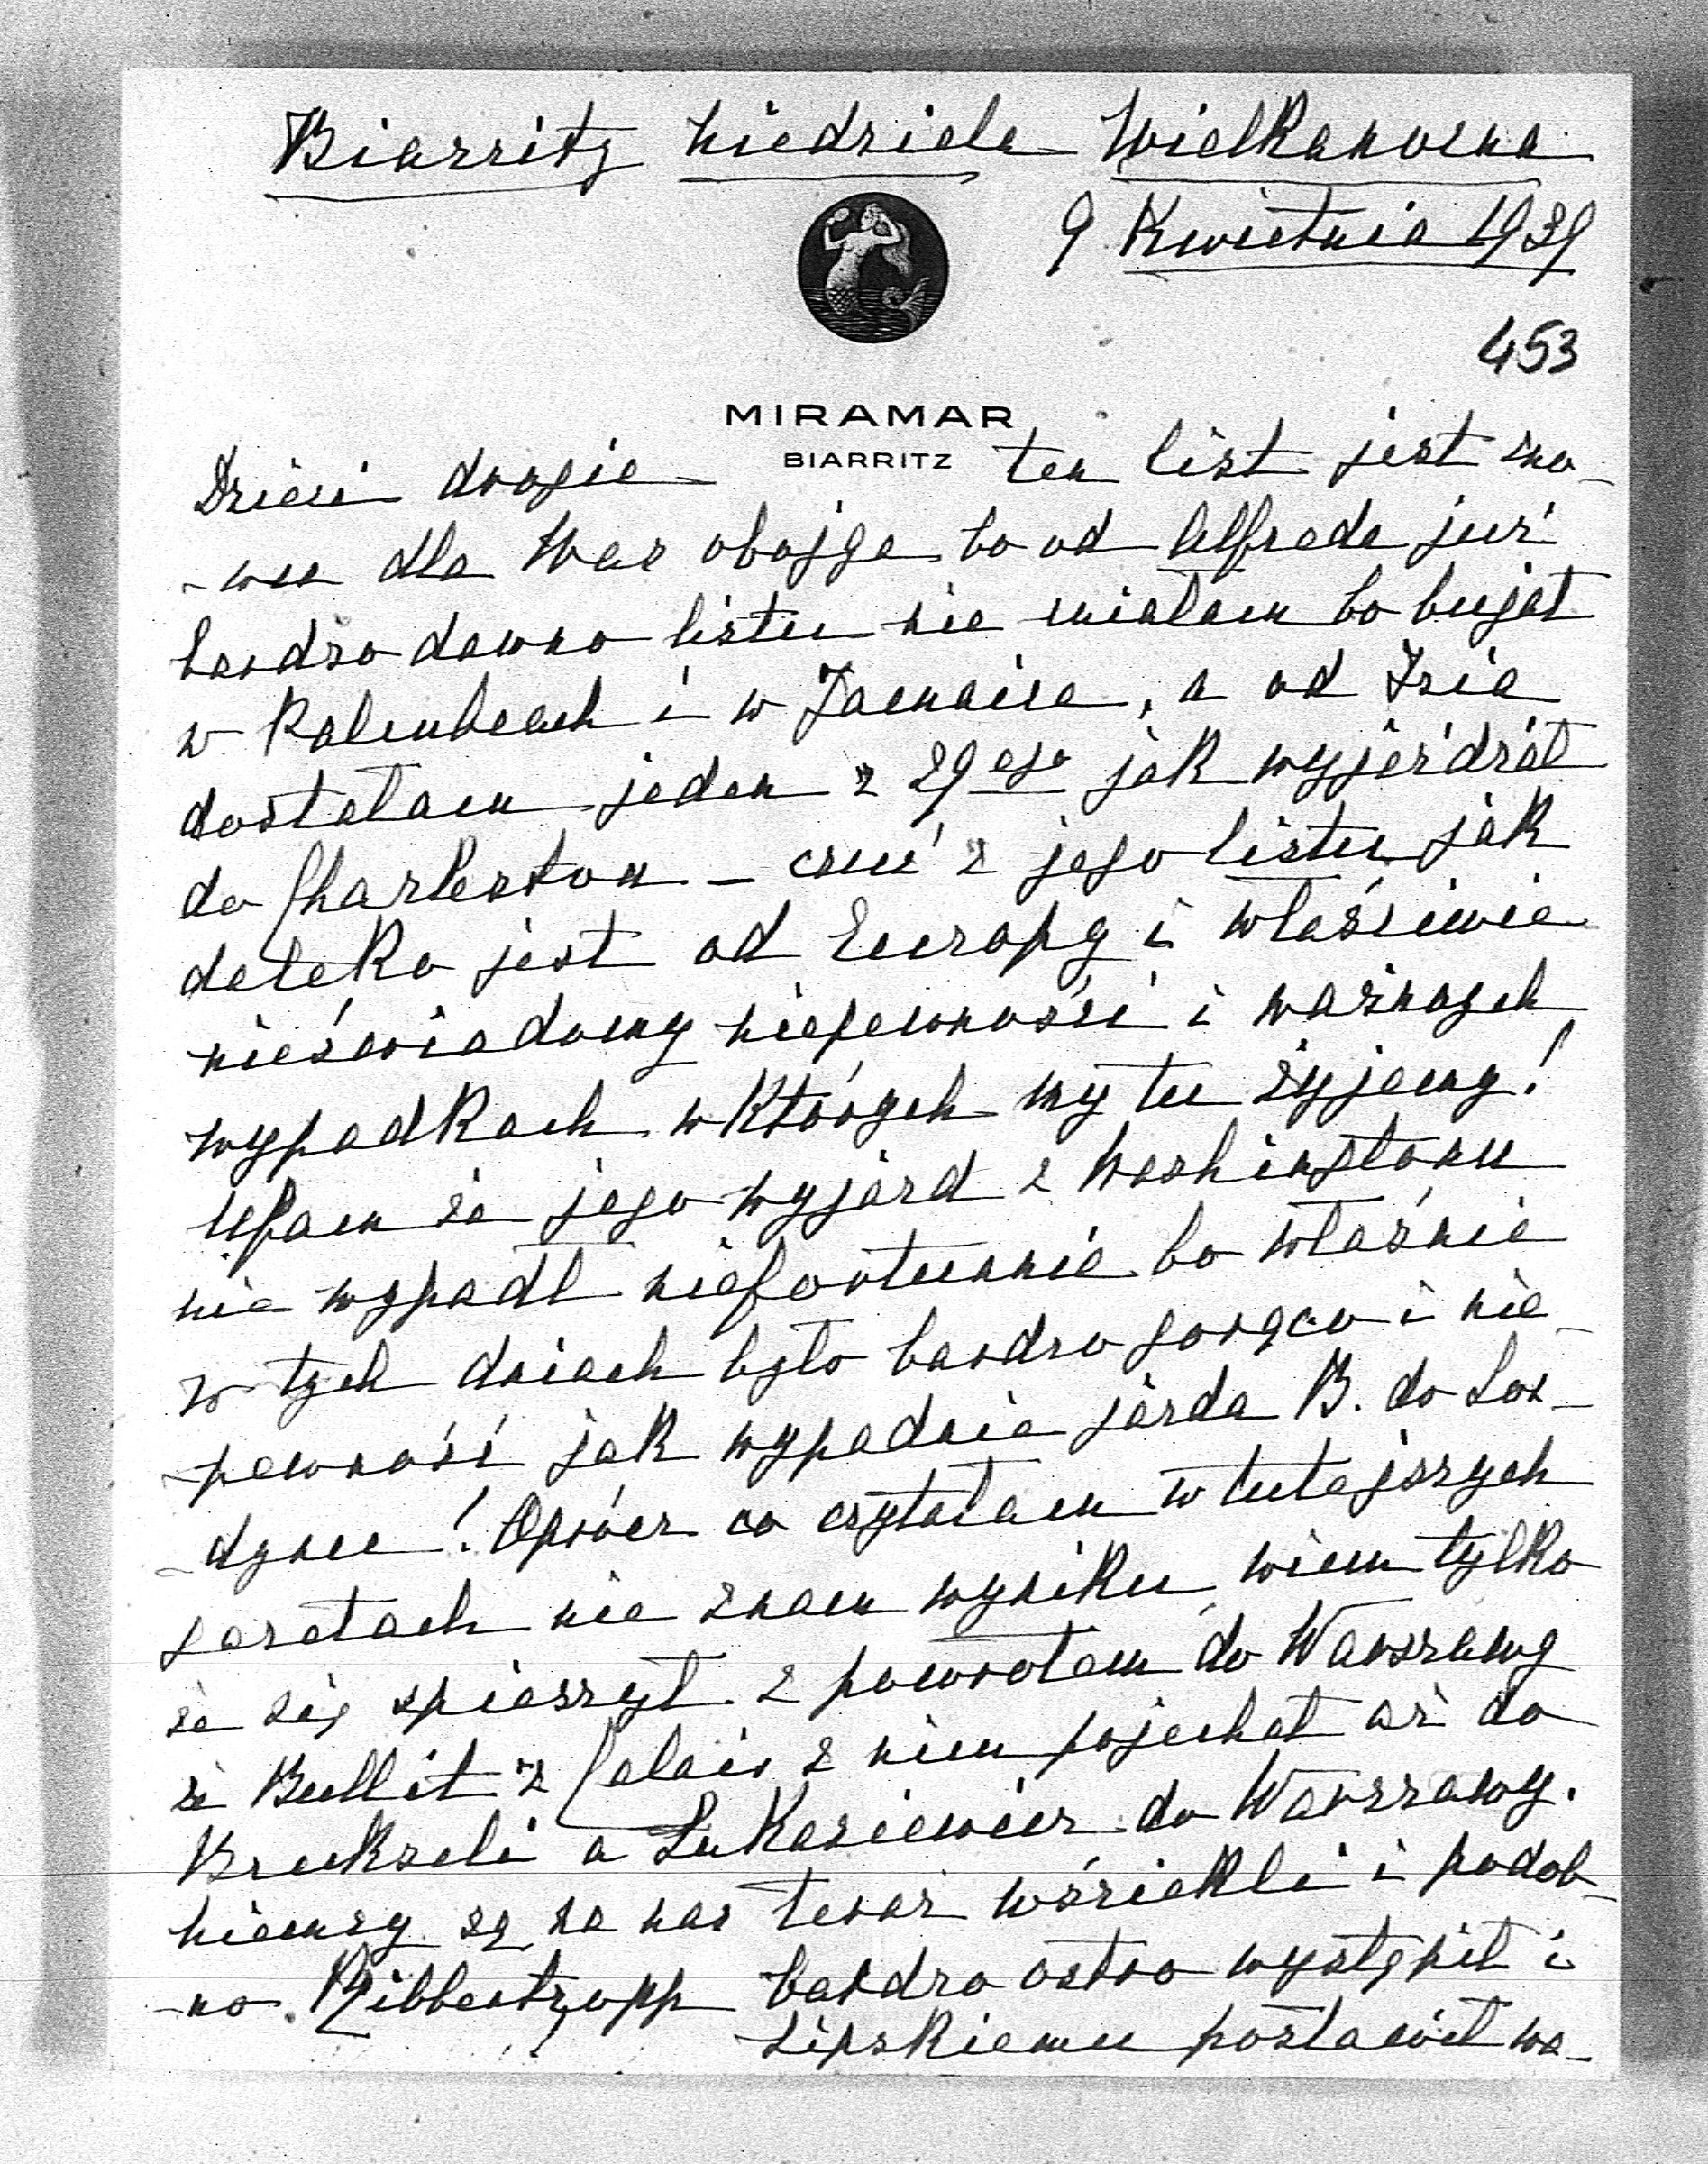 Biarritz niedziela Wielkanocna
9 Kwietnia 1939
453
MIRAMAR
BIARRITZ
Dzieci drogie ten list jest zno-
-wu dla Was obojga bo od Alfreda już
bardzo dawno listu nie miałam bo bujał
w Palmbeach i w Jamaice, a od Izia
dostałam jeden z 29ego jak wyjeżdżał
do Charleston – czuć z jego listu jak
daleko jest od Europy i właściwie
nieświadomy niepewności i ważnych
wypadkach w których my tu żyjemy!
Ufam że jego wyjazd z Washingtonu
nie wypadł niefortunnie bo właśnie
w tych dniach było bardzo gorąco i nie-
-pewność jak wypadnie jazda B. do Lon-
-dynu! Oprócz co czytałam w tutejszych
gazetach nie znam wyniku, wiem tylko
że się spieszył z powrotem do Warszawy
że Bullit z Calais z nim pojechał aż do
Brukseli a Łukasiewicz do Warszawy.
Niemcy są na nas teraz wściekli i podob-
-no Ribbentropp bardzo ostro wystąpił i
Lipskiemu postawił wa-